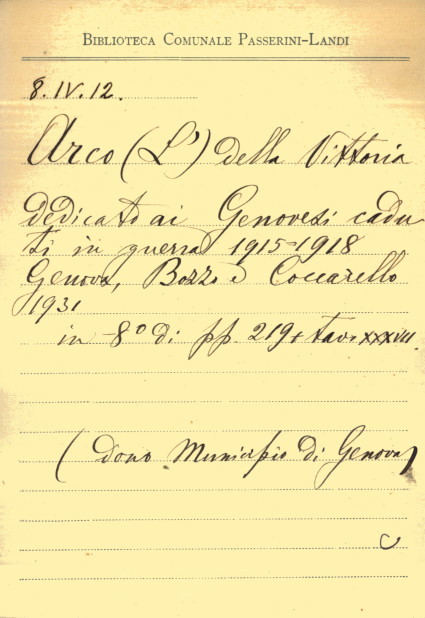 BIBLIOTECA COMUNALE PASSERINI-LANDI
8.IV.12.
Arco (L') della Vittoria
dedicato ai Genovesi cadu
ti in guerra 1915-1918
Genova, Bozzo e Coccarello
1931
in 8° di pp. 219 + tav. XXXVII
(dono Municipio di Genova)
C